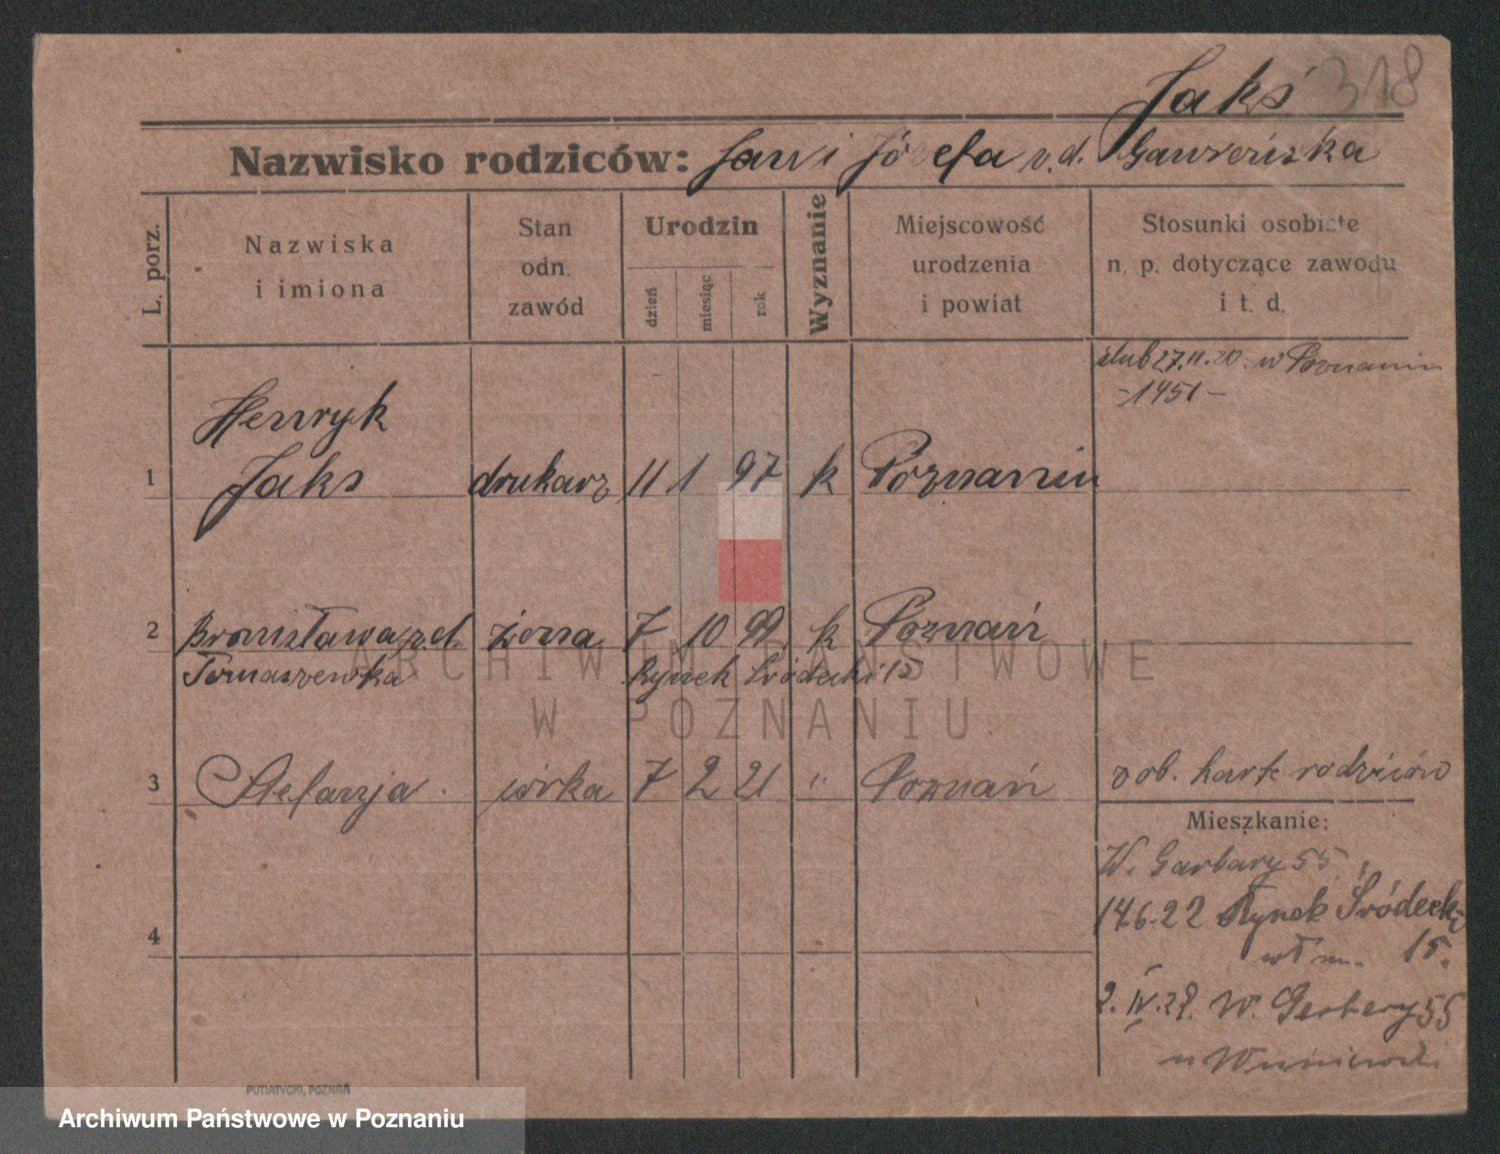 318
Jakś
Nazwisko rodziców: Jan i Józefa z. d. Gawreńska
L. porz.
Nazwiska i imiona
Stan odn. zawód
Urodzin
dzień miesiąc rok
Wyznanie
Miejscowość urodzenia i powiat
Stosunki osobiste n. p. dotyczące zawodu i t. d.
ślub 27.11.20. w Poznaniu
-1451-
Henryk
1 Jaks drukarz 11 1 97 k Poznaniu
2 Bronisława z. d. żona 7 10 99 k Poznań
Tomaszewska Rynek Śródecki 15
3 Stefanja córka 7 2 21 " Poznań zob. kartę rodziców
Mieszkanie:
W. Garbary 55
14.6.22 Rynek Śródecki
wł m. 15.
4
2.IV.29. W. Garbary 55
u
PUTIATYCKI, POZNAŃ
ARCHIWUM PAŃSTWOWE
W POZNANIU
Archiwum Państwowe w Poznaniu